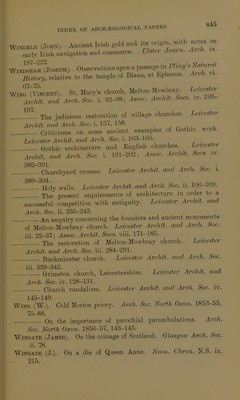 INDEX OF ARCHÆOLOGICAL PAPERS 845
WINDELE (JOHN). Ancient Irish gold and its origin, with notes on
early Irish navigation and commerce. Ulster Journ. Arch. ix.
197-222.
WINDHAM (JOSEPH). Observations upon a passage in Pliny's Natural
History, relative to the temple of Diana, at Ephesus. Arch. vi.
67-75.
WING (VINCENT). St. Mary's church, Melton-Mowbray. Leicester
Archit. and Arch. Soc. i. 92-98; Assoc. Archit. Socs. iv. 193-
197.
—— The judicious restoration of village churches. Leicester
Archit. and Arch. Soc. i. 157, 158.
—— Criticisms on some ancient examples of Gothic work.
Leicester Archit. and Arch. Soc. i. 163-166.
—— Gothic architecture and English churches. Leicester
Archit. and Arch. Soc. i. 191-202; Assoc. Archit. Socs. iv.
382-391.
—— Churchyard crosses. Leicester Archit. and Arch. Soc. i.
389-394.
—— Holy wells. Leicester Archit. and Arch. Soc. ii. 106-109.
—— The present requirements of architecture in order to a
successful competition with antiquity. Leicester Archit. and
Arch. Soc. ii. 235-243.
—— An enquiry concerning the founders and ancient monuments
of Melton-Mowbray church. Leicester Archit. and Arch. Soc.
iii. 22-37; Assoc. Archit. Socs. viii. 171-185.
—— The restoration of Melton-Mowbray church. Leicester
Archit. and Arch. Soc. iii. 284-291.
—— Buckminster church. Leicester Archit. and Arch. Soc.
iii. 339-342.
—— Grimston church, Leicestershire. Leicester Archit. and
Arch. Soc. iv. 128-131.
—— Church vandalism. Leicester Archit. and Arch. Soc. iv.
145-149.
WING (W.). Cold Norton priory. Arch. Soc. North Oxon. 1853-55,
75-88.
—— On the importance of parochial perambulations. Arch.
Soc. North Oxon. 1856-57, 143-145.
WINGATE (JAMES). On the coinage of Scotland. Glasgow Arch. Soc.
ii. 78.
WINGATE (J.). On a die of Queen Anne. Num. Chron. N.S. ix.
215.